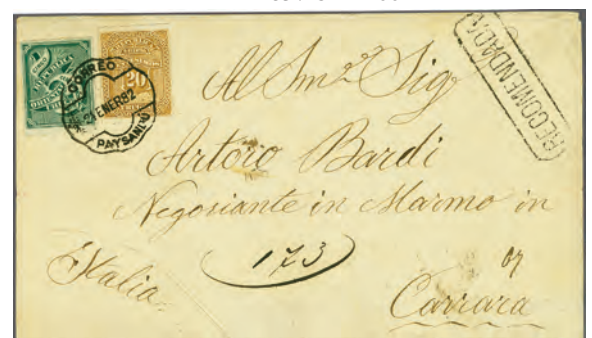 CORREO
21 ENER 92
PAYSANDÚ
20
RECOMENDADA
Al Smo Sig
Artoro Bardi
Negosiante in Marmo in
173
Italia
Carrara